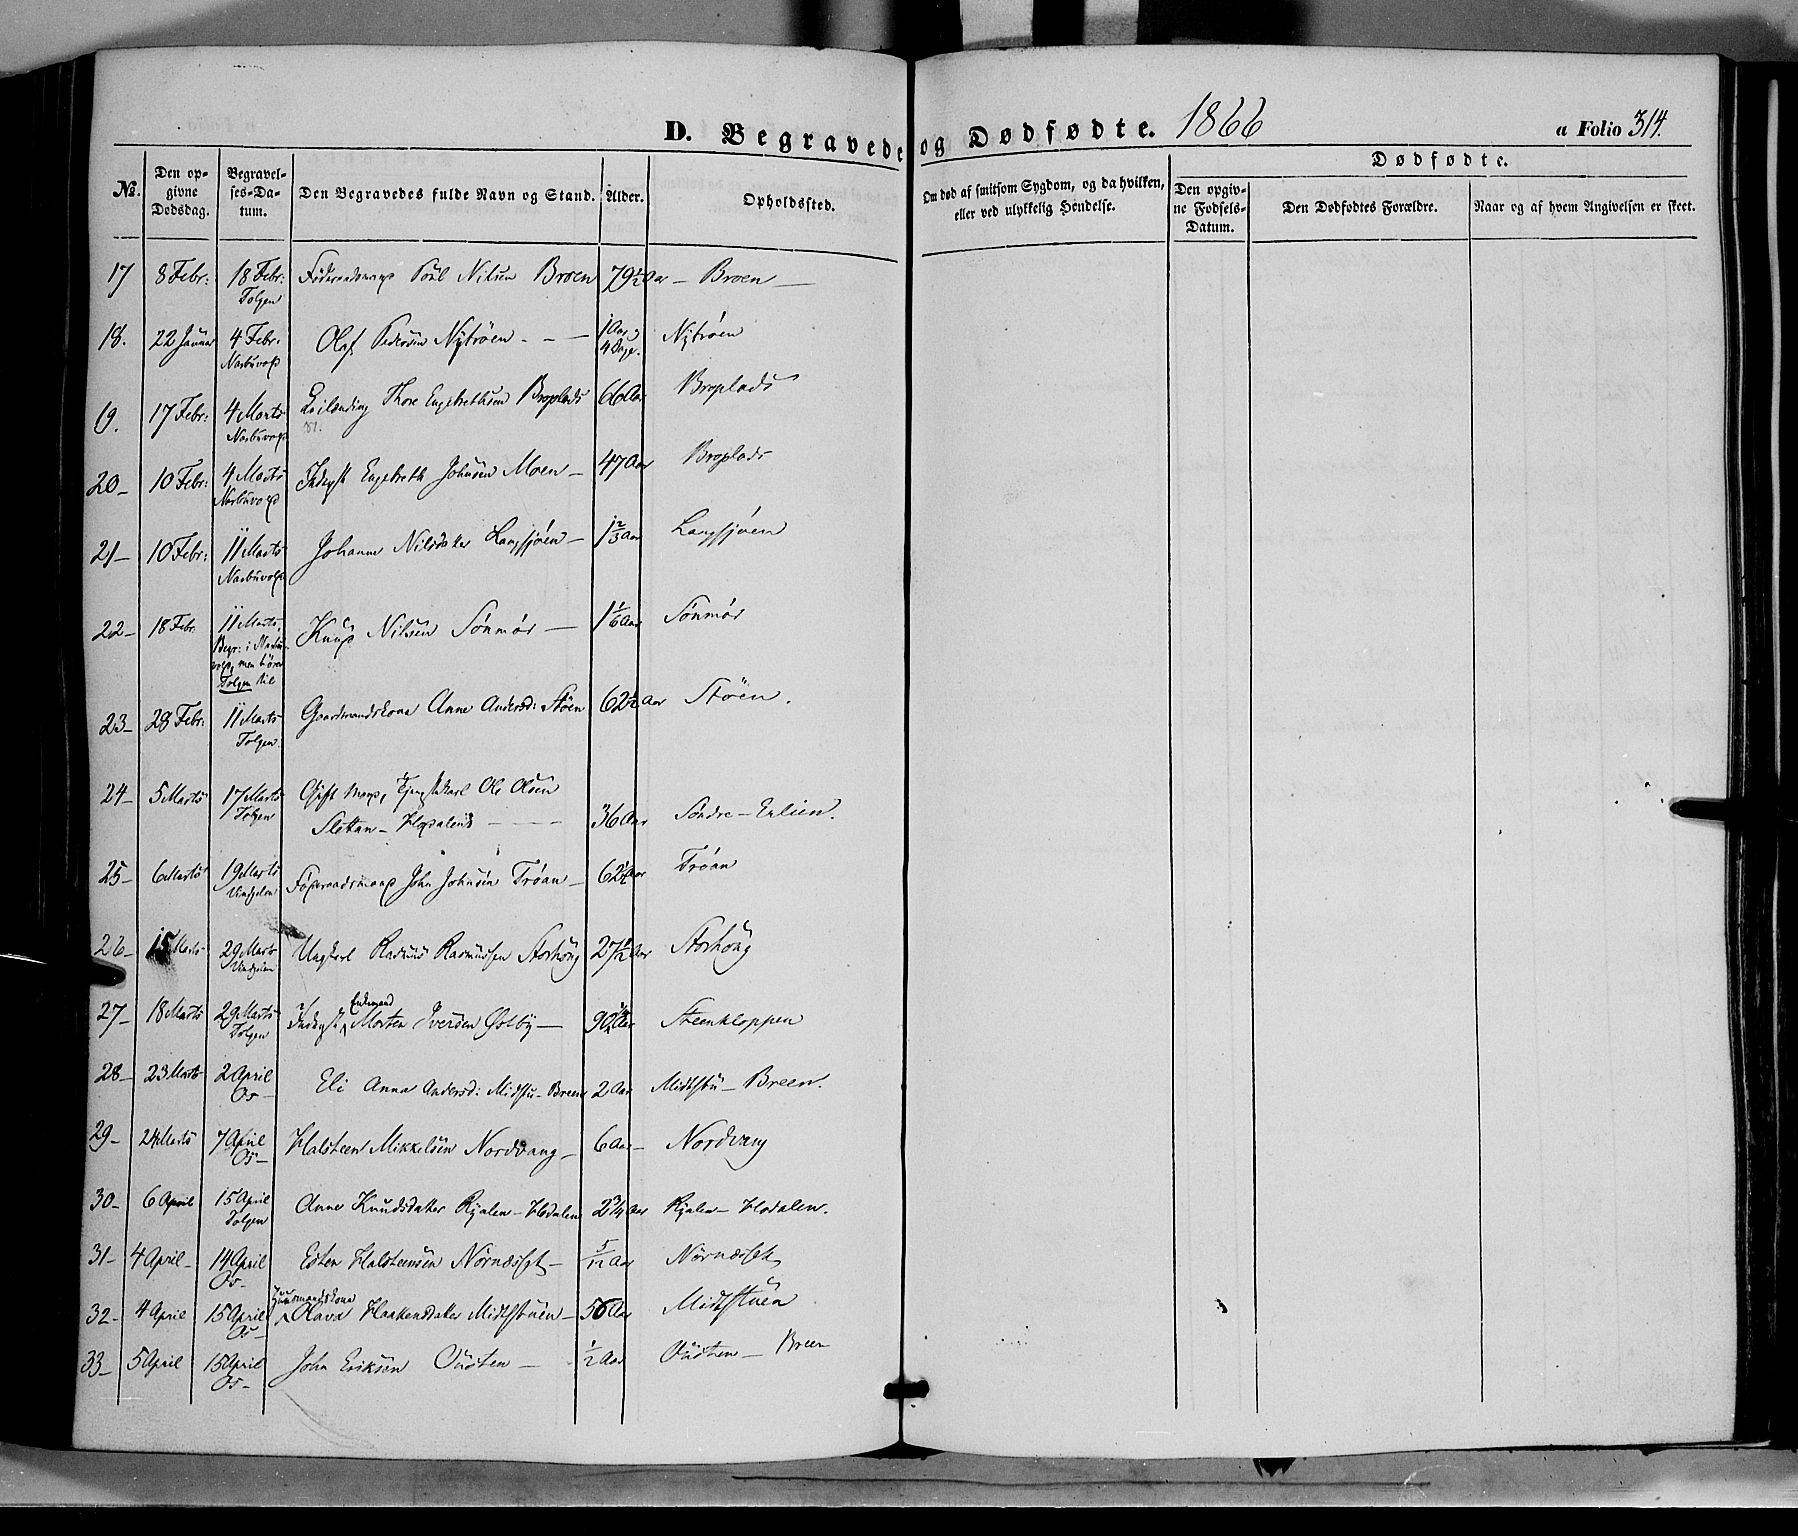 D. Begravede og Dødfødte. 1866
a Folio 314.
No.
Den opgivne Dødsdag.
Begravelses-Datum.
Den Begravedes fulde Navn og Stand.
Alder.
Opholdssted.
Om død af smitsom Sygdom, og da hvilken, eller ved ulykkelig Hendelse.
Dødfødte.
Den opgivne Fødsels-Datum.
Den Dødfødtes Forældre.
Naar og af hvem Angivelsen er skeet.
17 8 Febr: 18 Febr: Tolgen Poul Nilsen Broen 79½ Aar – Broen –
18. 22 Januar 4 Febr: Narbuvold Oluf Pedersen Nytrøen - - – 1 Aar 4 Dage. Nytrøen
19. 17 Febr: 4 Marts Narbuvold Thore Engebrethsen Broplads 66 Aar Broplads
20– 10 Febr: 4 Marts Narbuvold Inderst Engebreth Johnsen Moen – 47 Aar Broplads
21– 10 Febr: 11 Marts Narbuvold Johanne Nilsdatter Langsjøen – 1⅔ Aar Langsjøen
22– 18 Febr. 11 Marts Begr: i Narbuvold, men hører Tolgen til Knud Nilsen Sønmør – 1 1/6 Aar Sønmør
23– 28 Febr: 11 Marts Tolgen. Gaardmandskone Anne Andersd: Støen 62½ Aar Støen.
24– 5 Marts 17 Marts Tolgen Gift Mand, Tjenestekarl Ole Olsen
Slettan – Hodalens – – – 36 Aar Søndre – Erlien.
25– 6 Marts 19 Marts Vingelen Føderaadsmand John Johnsen Trøan – 62½ Aar Trøan
26– 15 Marts 29 Marts Vingelen Ungkarl Rasmus Rasmussen Storhoug 27½ Aar Storhoug
27– 18 Marts 29 Marts Tolgen Inderst Enkemand Morten Iversen Østby – Aar Steenkloppen
28– 23 Marts 2 April Os – Eli Anna Andersd: Midtstu – Breen 2 Aar Midtstu – Breen.
29– 24 Marts 7 April Os – Halsteen Mikkelsen Nordvang – 6 Aar – Nordvang
30– 6 April 15 April Tolgen Anne Knudsdatter Ryalen – Hodalen 2¾ Aar Ryalen – Hodalen.
31– 4 April – 14 April Os – Esten Halsteensen Nørnæsset – 5/12 Aar Nørnæsset
32– 4 April 15 April Os – Huusmandskone Olava Haakensdatter Midtstuen – 56 Aar Midtstuen
33– 5 April 15 April Os – John Eriksen Ousten – ½ Aar Ousten – Breen